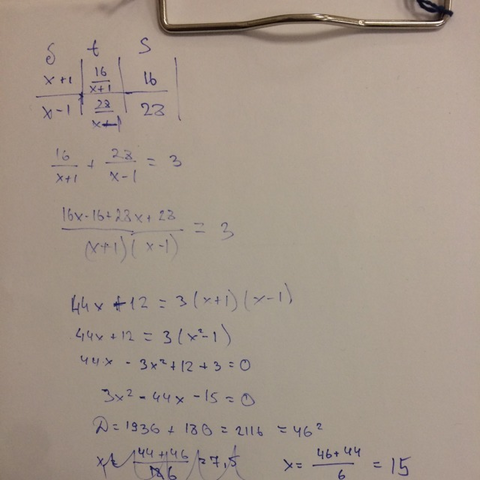 S t S
x+1 | 16/(x+1) | 16
x-1 | 28/(x-1) | 28
16/(x+1) + 28/(x-1) = 3
(16x-16+28x+28)/((x+1)(x-1)) = 3
44x + 12 = 3(x+1)(x-1)
44x+12 = 3(x²-1)
44x - 3x²+12+3=0
3x²-44x-15=0
D=1936+180=2116=46²
x = (46+44)/6 = 15